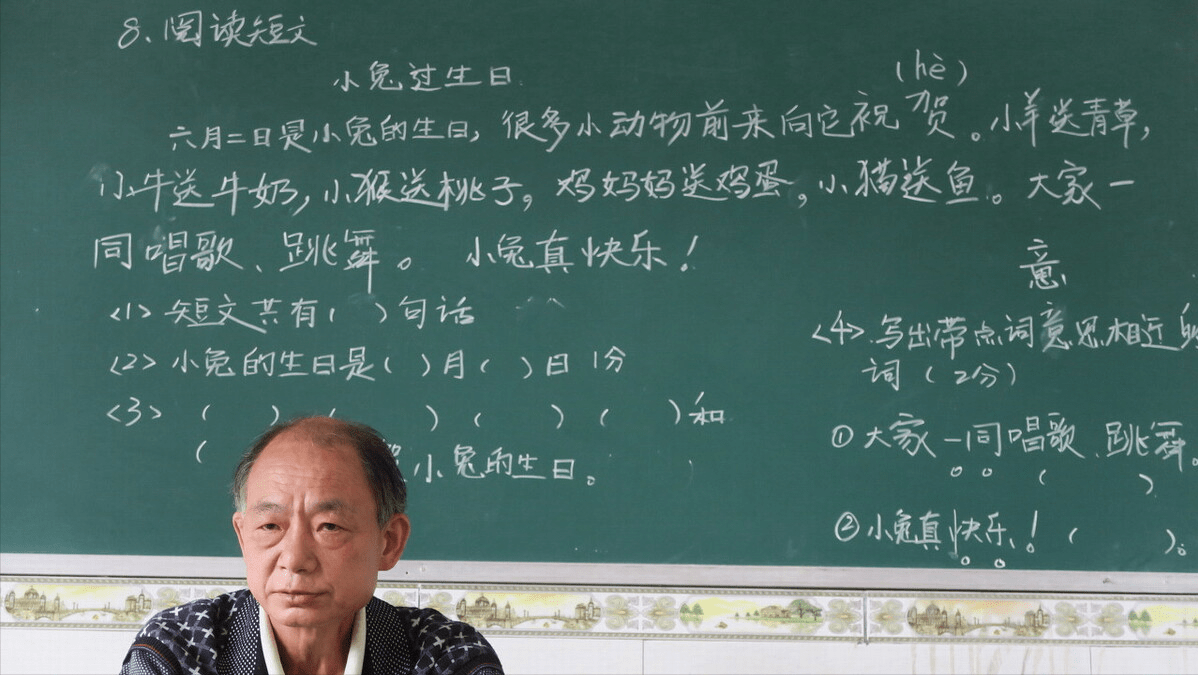 8、阅读短文
小兔过生日
(hè)
六月二日是小兔的生日，很多小动物前来向它祝贺。小羊送青草，
小牛送牛奶，小猴送桃子。鸡妈妈送鸡蛋。小猫送鱼。大家一
同唱歌、跳舞。小兔真快乐！
<1> 短文共有( )句话
<2> 小兔的生日是( )月( )日 1分
<3> ( ) ( ) ( ) ( )和
( 小兔的生日。
意
<4> 写出带点词意思相近的
词 (2分)
① 大家一同唱歌、跳舞。
( )
② 小兔真快乐！( )。